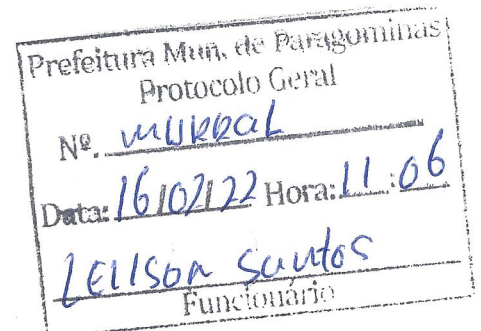 Prefeitura Mun. de Paragominas
Protocolo Geral
Nº. MURRAL
Data: 16/02/22 Hora: 11:06
Leilson Santos
Funcionário